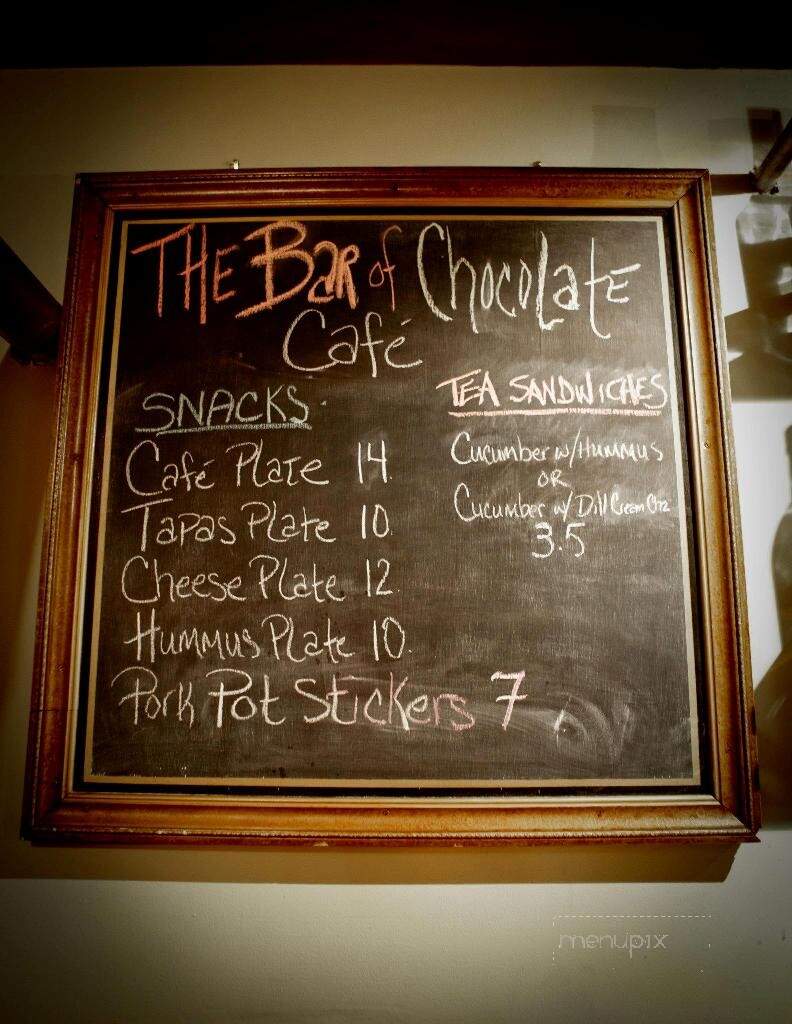 THE BAR of ChocoLatE
Café
SNACKS
Café Plate 14.
Tapas Plate 10.
Cheese Plate 12.
Hummus Plate 10.
Pork Pot Stickers 7
TEA SANDWICHES
Cucumber w/Hummus
OR
Cucumber w/ Dill Cream Chz
3.5
menupix